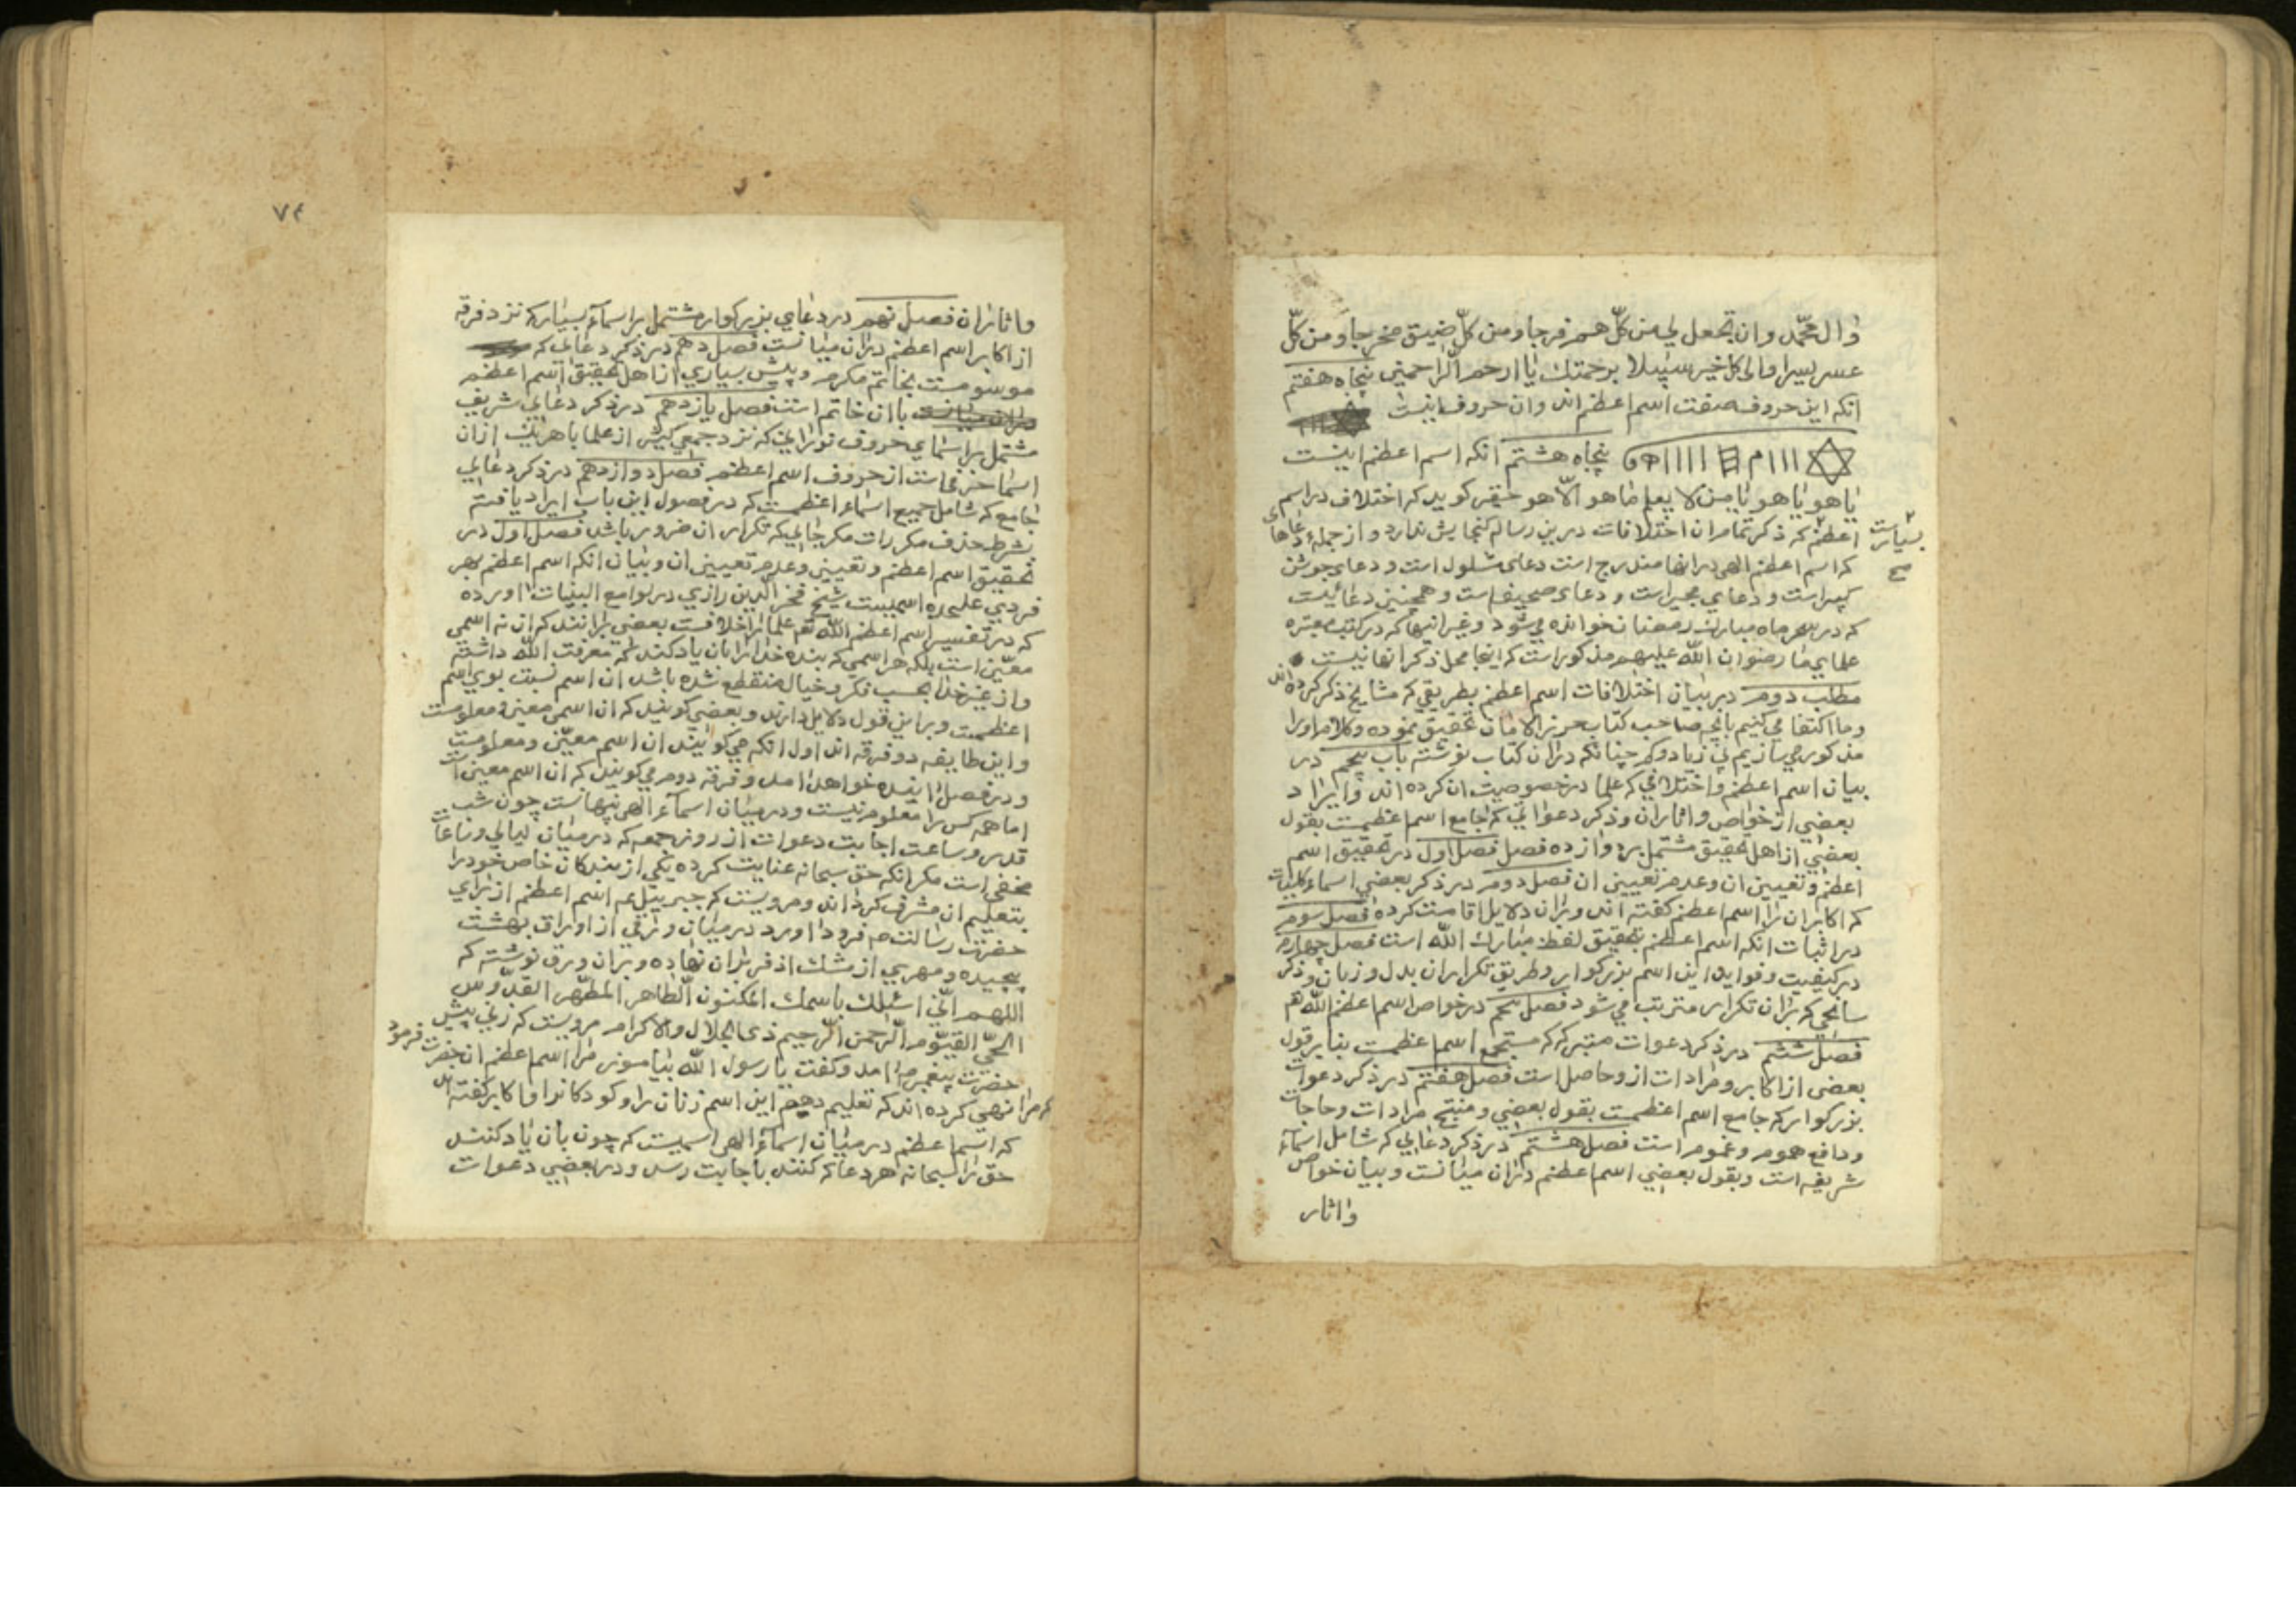 وال محمّد وان تجعل لي من كلّ هم فرجا ومن كلّ ضيق مخرجا ومن كلّ
عسر يسرا والى كل خير سبيلا برحمتك يا ارحم الراحمين پنجاه هفتم
انكه اين حروف صفت اسم اعظم اند وان حروف اينست
پنجاه هشتم انكه اسم اعظم اينست
يا هو يا هو يا من لا يعلم ما هو الّا هو حقير كويد كه اختلاف در اسم
اعظم بسيار است كه ذكر تمام ان اختلافات درين رساله كنجايش ندارد و از جمله دعاهاى
كه اسم اعظم الهى در انها مندرج است دعاى مشلول است و دعاى جوشن
كبير است و دعاي مجير است و دعاى صحيفه است و همچنين دعائيست
كه در سحر ماه مبارك رمضان خوانده مي شود و غير اينها كه در كتب معتبره
علماي ما رضوان الله عليهم مذكور است كه اينجا محل ذكر انها نيست
مطلب دوم در بيان اختلافات اسم اعظم بطريقي كه مشايخ ذكر كرده اند
وما اكتفا مي كنيم بانچه صاحب كتاب حرز الامان تحقيق نموده و كلام او را
مذكور مي سازيم بي زياد و كم چنانكه در ان كتاب نوشته باب پنجم در
بيان اسم اعظم و اختلافي كه علما در خصوصيت ان كرده اند و ايراد
بعضي از خواص و اثار ان و ذكر دعواتي كه جامع اسم اعظمست بقول
بعضي از اهل تحقيق مشتمل بر دوازده فصل فصل اول در تحقيق اسم
اعظم و تعيين ان و عدم تعيين ان فصل دوم در ذكر بعضي اسماء و كلمات
كه اكابر ان را اسم اعظم كفته اند و بران دلايل اقامت كرده فصل سوم
در اثبات انكه اسم اعظم بتحقيق لفظ مبارك الله است فصل چهارم
در كيفيت و فوايد اين اسم بزركوار و طريق تكرار ان بدل و زبان و ذكر
سانحي كه بران تكرار مترتب مي شود فصل پنجم در خواص اسم اعظم الله هم
فصل ششم در ذكر دعوات معتبر كه كه مستجمع اسم اعظمست بنا بر قول
بعضى از اكابر و مرادات ازو حاصل است فصل هفتم در ذكر دعوات
بزركوار كه جامع اسم اعظمست بقول بعضي و منتج مرادات و حاجات
و دافع هموم و غموم است فصل هشتم در ذكر دعايي كه شامل اسماء
شريفه است و بقول بعضي اسم اعظم در ان ميانست و بيان خواص
واثار
٧٤
واثار ان فصل نهم در دعاي بزركوار مشتمل بر اسماء بسيار كه نزد فرقه
از اكابر اسم اعظم در ان ميانست فصل دهم در ذكر دعايى كه
موسومست بخاتم مكرم و پيش بسياري از اهل تحقيق اسم اعظم
با ان خاتم است فصل يازدهم در ذكر دعايي شريف
مشتمل بر اسماي حروف نوراني كه نزد جمعي كثير از علما با هر يك ازان
اسما حرفى است از حروف اسم اعظم فصل دوازدهم در ذكر دعايي
جامع كه شامل جميع اسماء اعظمست كه در فصول اين باب ايراد يافته
بشرط حذف مكررات مكر جايي كه تكرار ان ضرور باشد فصل اول در
تحقيق اسم اعظم و تعيين و عدم تعيين ان و بيان انكه اسم اعظم بهر
فردي عليحده اسميست شيخ فخر الدين رازي در لوامع البينات اورده
كه در تفسير اسم اعظم الله هم علما را خلافست بعضي برانند كه ان نه اسمى
معيّن است بلكه هر اسمي كه بنده خدا را بان ياد كند كه معرفت الله داشته
و از غير خدا بحسب فكر و خيال منقطع شده باشد ان اسم نسبت بوي اسم
اعظمست و براين قول دلايل دارند و بعضي كويند كه ان اسمى معين و معلومست
واين طايفه دو فرقه اند اول انكه مي كويند ان اسم معيّن و معلومست
و در فصل اينده خواهد امد و فرقه دوم مي كويند كه ان اسم معين است
اما همه كس را معلوم نيست و در ميان اسماء الهى پنهانست چون شب
قدر و ساعت اجابت دعوات از روز جمعه كه در ميان ليالي و ساعات
مخفى است مكر انكه حق سبحانه عنايت كرده يكي از بندكان خاص خود را
بتعليم ان مشرف كرداند و مرويست كه جبرييل عم اسم اعظم از براي
حضرت رسالت صه فرود اورد در ميان ورقي از اوراق بهشت
پيچيده و مهري از مشك اذفر بران نهاده و بران ورق نوشته كه
اللهم انّي اسئلك باسمك المكنون الطاهر المطهّر القدّوس
الحيّ القيّوم الرّحمن الرّحيم ذى الجلال والاكرام مرويست كه زني پيش
حضرت پيغمبر صه امد و كفت يا رسول الله بياموز مرا اسم اعظم ان حضرت فرمود
كه مرا نهي كرده اند كه تعليم دهم اين اسم زنان را و كودكانرا و اكابر كفته اند
كه اسم اعظم در ميان اسماء الهى اسميست كه چون بان ياد كنند
حق را سبحانه هر دعا كه كنند باجابت رسد و در بعضي دعوات